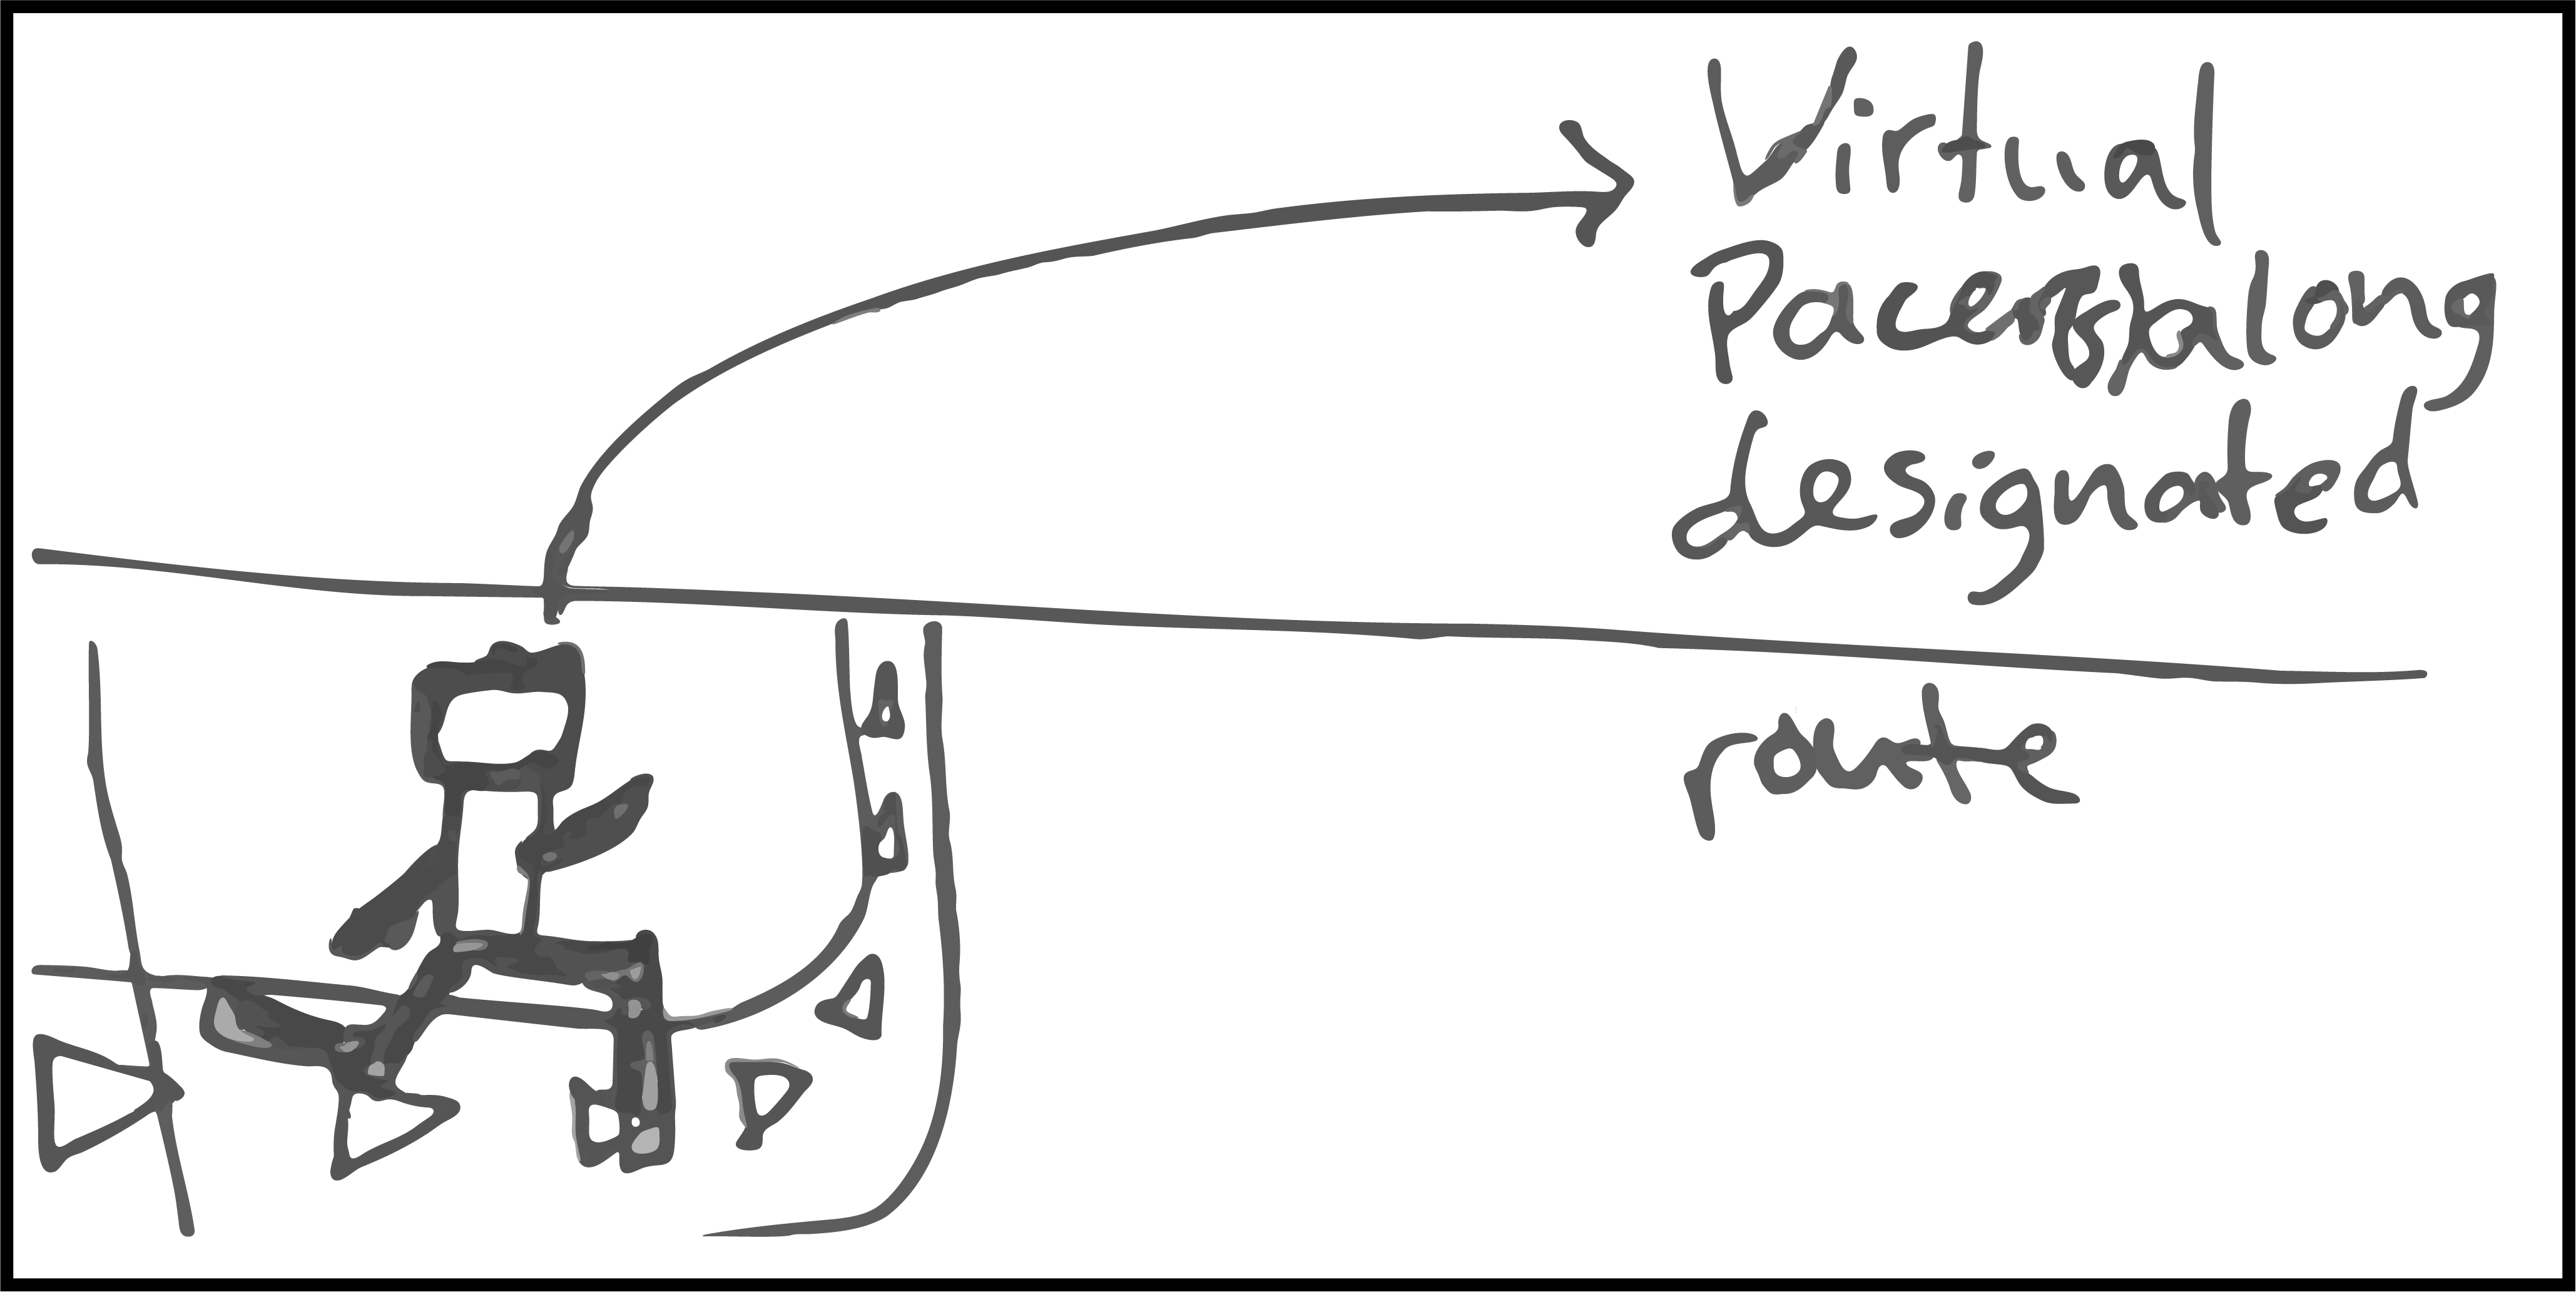 Virtual
Pacer(s) along
designated
route